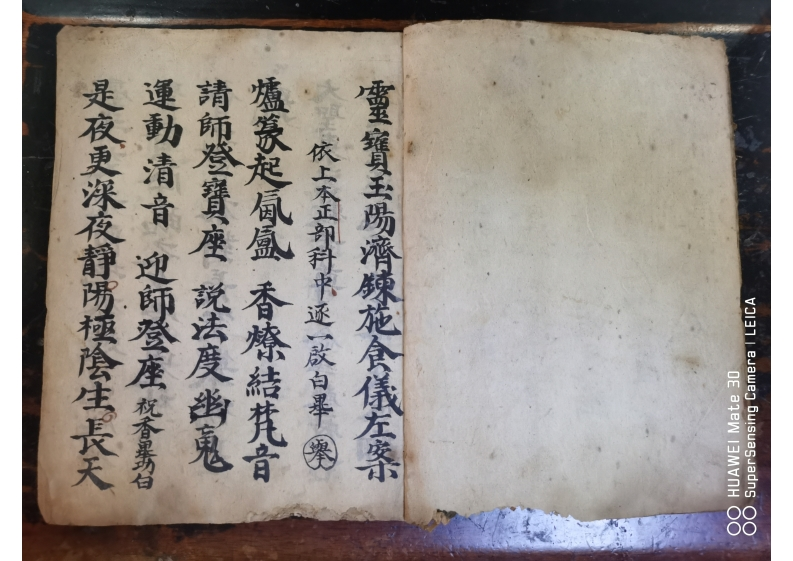 靈寶玉陽濟鍊施食儀左案
依上本正部科中逐一啟白畢 舉
爐篆起氤氳 香燎結梵音
請師登寶座 說法度幽鬼
運動清音 迎師登座 祝香畢功白
是夜更深夜靜陽極陰生長天
HUAWEI Mate 30
SuperSensing Camera | LEICA